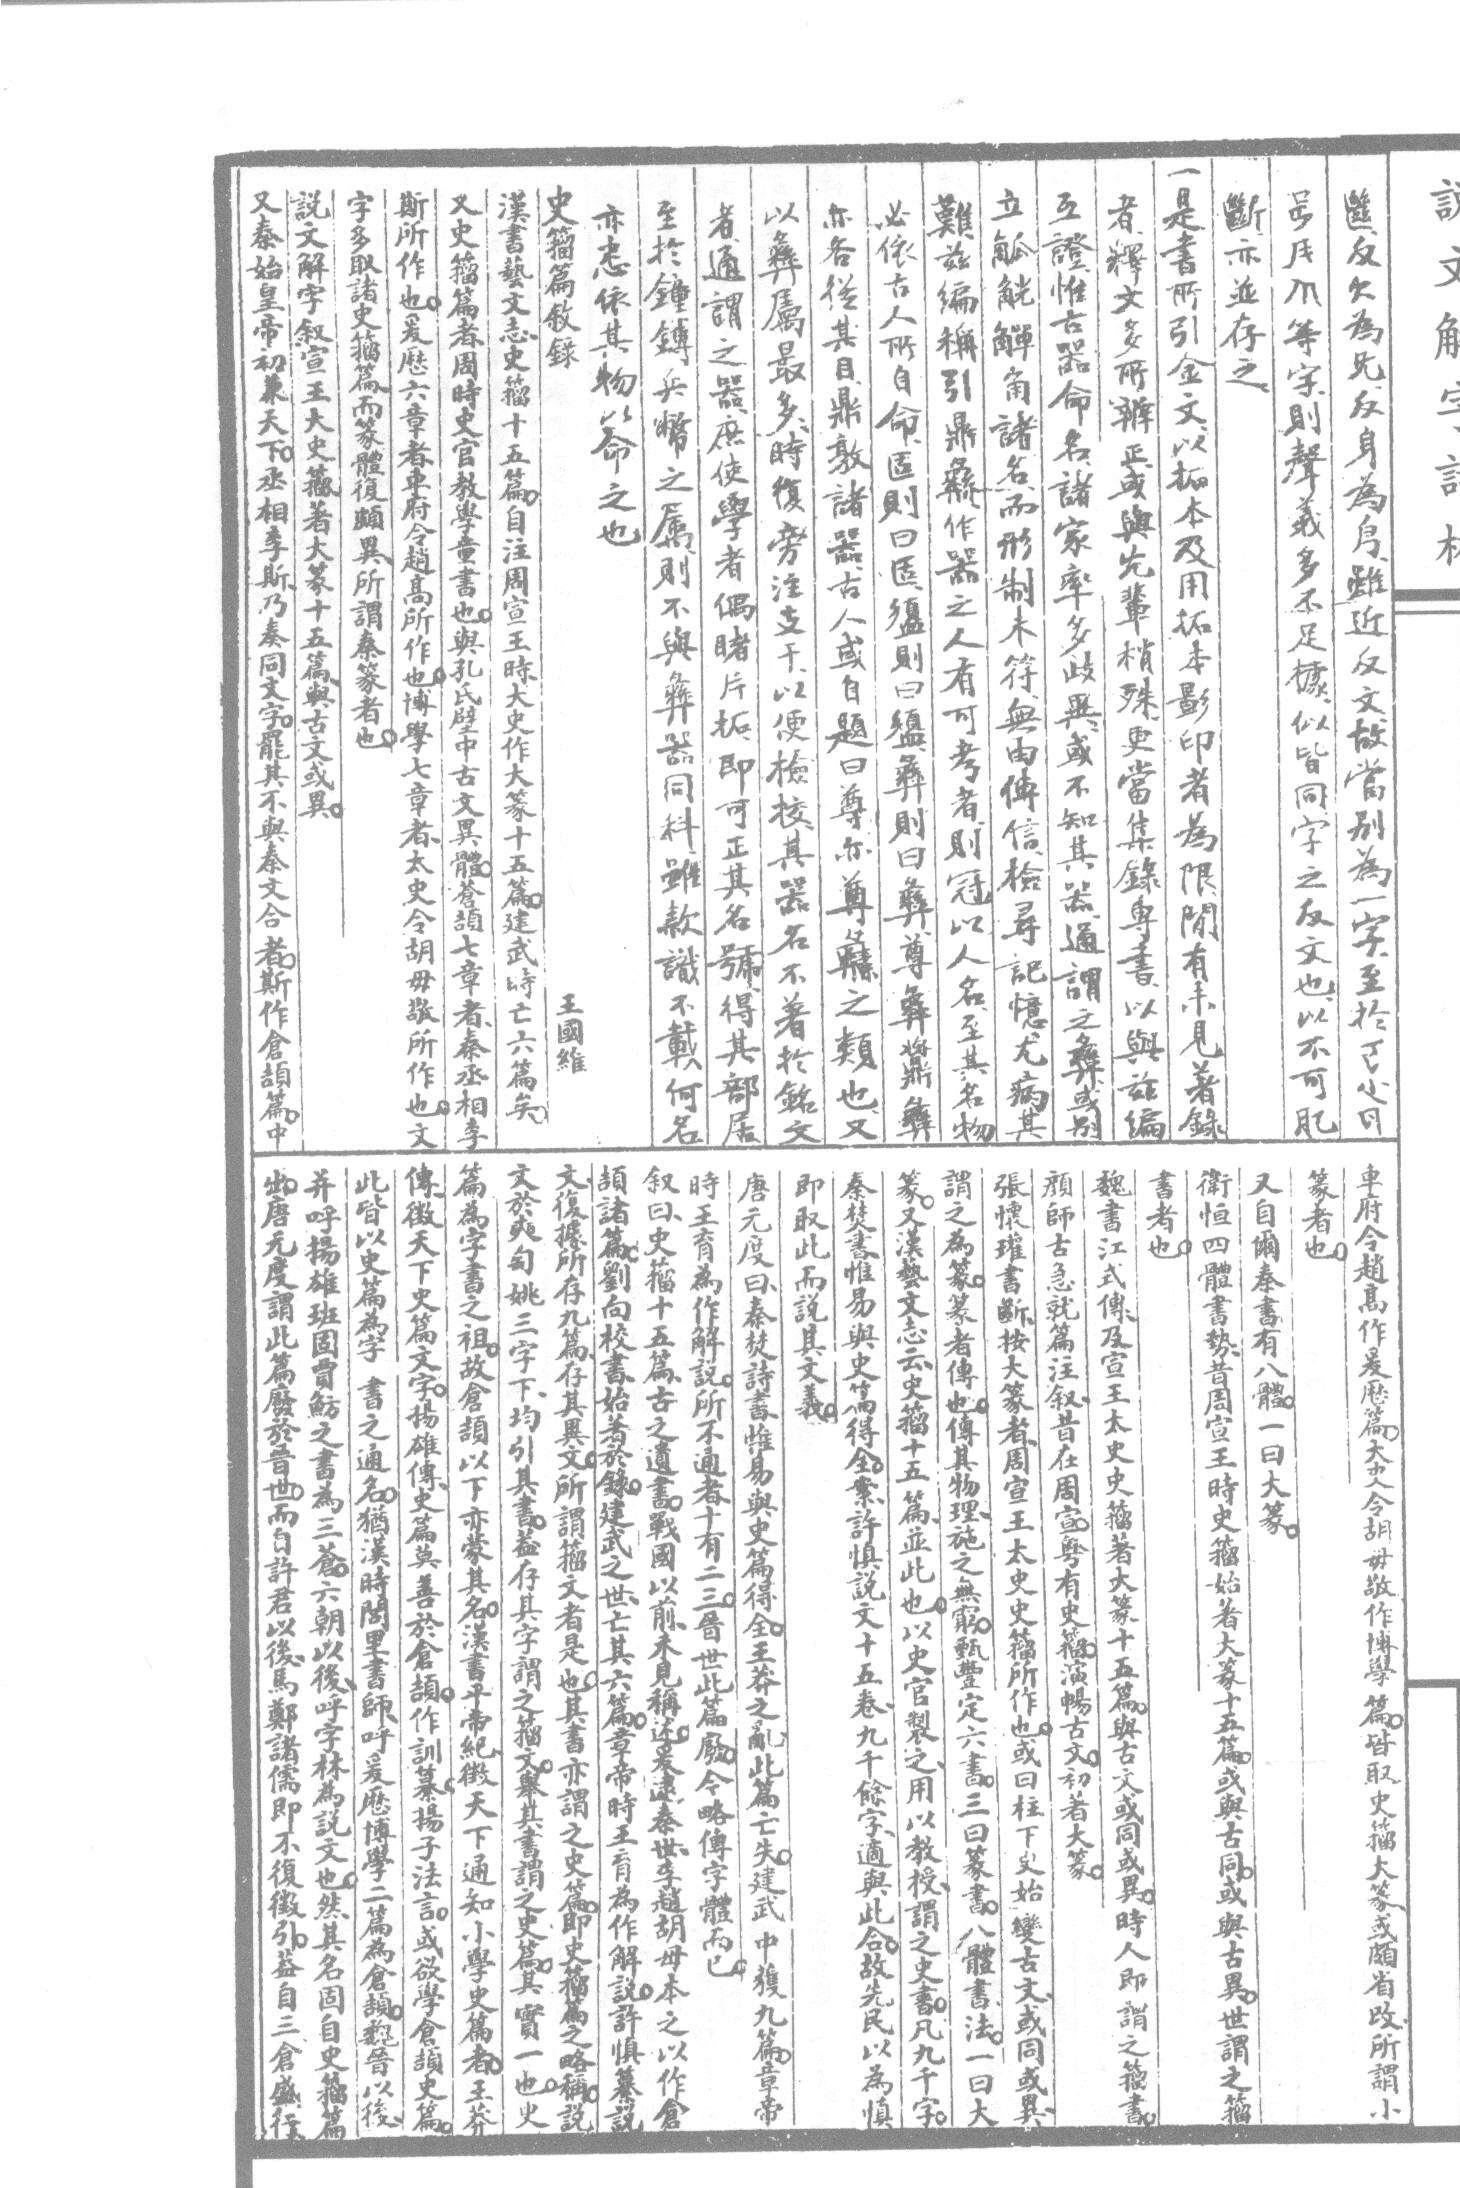 反欠為旡、反身為㐆、雖近反文、故當别為一字、至於了
等字、則聲義多不足據、似皆同字之反文也、以不可肊
斷、亦並存之、
一是書所引金文、以拓本及用拓本影印者為限、閒有未見著錄
者、釋文多所辨正、或與先輩稍殊、更當集錄專書、以與茲編
互證、惟古器命名、諸家率多歧異、或不知其器、通謂之彝、或別
立觚觥觶角諸名、而形制未符、無由傳信、檢尋記憶、尤病其
難、茲編稱引鼎彝、作器之人有可考者、則冠以人名、至其名物
必依古人所自命、匜則曰匜、簠則曰簠、彝則曰彝、尊彝鼎彝
亦各從其目、鼎敦諸器、古人或自題曰尊、亦尊之類也、又
以彝屬最多、時復旁注支干、以便檢校、其器名不著於銘文
者、通謂之器、庶使學者偶睹片拓、即可正其名號、得其部居
至於鐘鎛兵幣之屬、則不與彝器同科、雖款識不載、何名
亦悉依其物以命之也
史籀篇敘錄
王國維
漢書藝文志、史籀十五篇。自注周宣王時、大史作大篆十五篇。建武時亡六篇矣。
又史籀篇者、周時史官教學童書也。與孔氏壁中古文異體。蒼頡七章者、秦丞相李
斯所作也。爰歷六章者、車府令趙高所作也。博學七章者、太史令胡毋敬所作也。文
字多取諸史籀篇、而篆體復頗異、所謂秦篆者也。
説文解字叙、宣王大史籀、著大篆十五篇、與古文或異。
又秦始皇帝初兼天下。丞相李斯、乃奏同文字。罷其不與秦文合者。斯作倉頡篇。中
車府令趙高作爰歷篇。大史令胡毋敬作博學篇。皆取史籀大篆、或頗省改、所謂小
篆者也。
又自爾秦書有八體。一曰大篆。
衛恒四體書勢、昔周宣王時史籀始著大篆十五篇。或與古同。或與古異。世謂之籀
書者也。
魏書江式傳、及宣王太史史籀著大篆十五篇。與古文或同或異。時人即謂之籀書。
顔師古急就篇注叙、昔在周宣。粤有史籀。演暢古文。初著大篆。
張懷瓘書斷、按大篆者、周宣王太史史籀所作也。或曰柱下史始變古文、或同或異、
謂之為篆。篆者傳也。傳其物理、施之無窮。甄豐定六書。三曰篆書。八體書法。一曰大
篆。又漢藝文志云、史籀十五篇、並此也。以史官製之、用以教授、謂之史書。凡九千字。
秦焚書、惟易與史篇得全。案許慎説文十五卷、九千餘字、適與此合、故先民以為慎
即取此而説其文義。
唐元度曰、秦焚詩書、惟易與史篇得全。王莽之亂、此篇亡失。建武中獲九篇。章帝
時王育為作解説。所不通者十有二三。晉世此篇廢。今略傳字體而已。
叙曰、史籀十五篇、古之遺書。戰國以前、未見稱述。爰逮秦世、李趙胡毋本之以作倉
頡諸篇。劉向校書、始著於錄。建武之世、亡其六篇。章帝時王育為作解説。許慎纂説
文、復據所存九篇、存其異文。所謂籀文者是也。其書亦謂之史篇。即史籀篇之略稱。説
文於奭匋姚三字下、均引其書。蓋存其字謂之籀文。舉其書謂之史篇。其實一也。史
篇為字書之祖。故倉頡以下亦蒙其名。漢書平帝紀、徵天下通知小學史篇者。王莽
傳、徵天下史篇文字。揚雄傳、史篇莫善於倉頡。作訓纂。揚子法言。或欲學倉頡史篇。
此皆以史篇為字書之通名。猶漢時閭里書師、呼爰歷博學二篇為倉頡。魏晉以後、
并呼揚雄班固賈魴之書為三蒼。六朝以後、呼字林為説文也。然其名固自史籀篇
出。唐元度謂此篇廢於晉世。而自許君以後、馬鄭諸儒即不復徵引。蓋自三倉盛行、